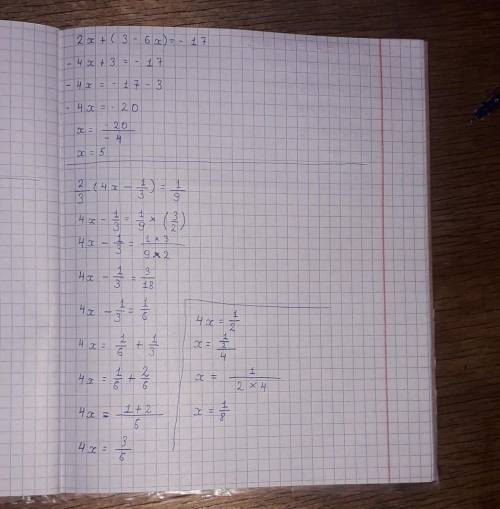 2x+(3-6x)=-17
-4x+3=-17
-4x=-17-3
-4x=-20
x=\frac{-20}{-4}
x=5
\frac{2}{3}(4x-\frac{1}{3})=\frac{1}{9}
4x-\frac{1}{3}=\frac{1}{9}×(\frac{3}{2})
4x-\frac{1}{3}=\frac{1×3}{9×2}
4x-\frac{1}{3}=\frac{3}{18}
4x-\frac{1}{3}=\frac{1}{6}
4x=\frac{1}{6}+\frac{1}{3}
4x=\frac{1}{6}+\frac{2}{6}
4x=\frac{1+2}{6}
4x=\frac{3}{6}
4x=\frac{1}{2}
x=\frac{\frac{1}{2}}{4}
x=\frac{1}{2×4}
x=\frac{1}{8}